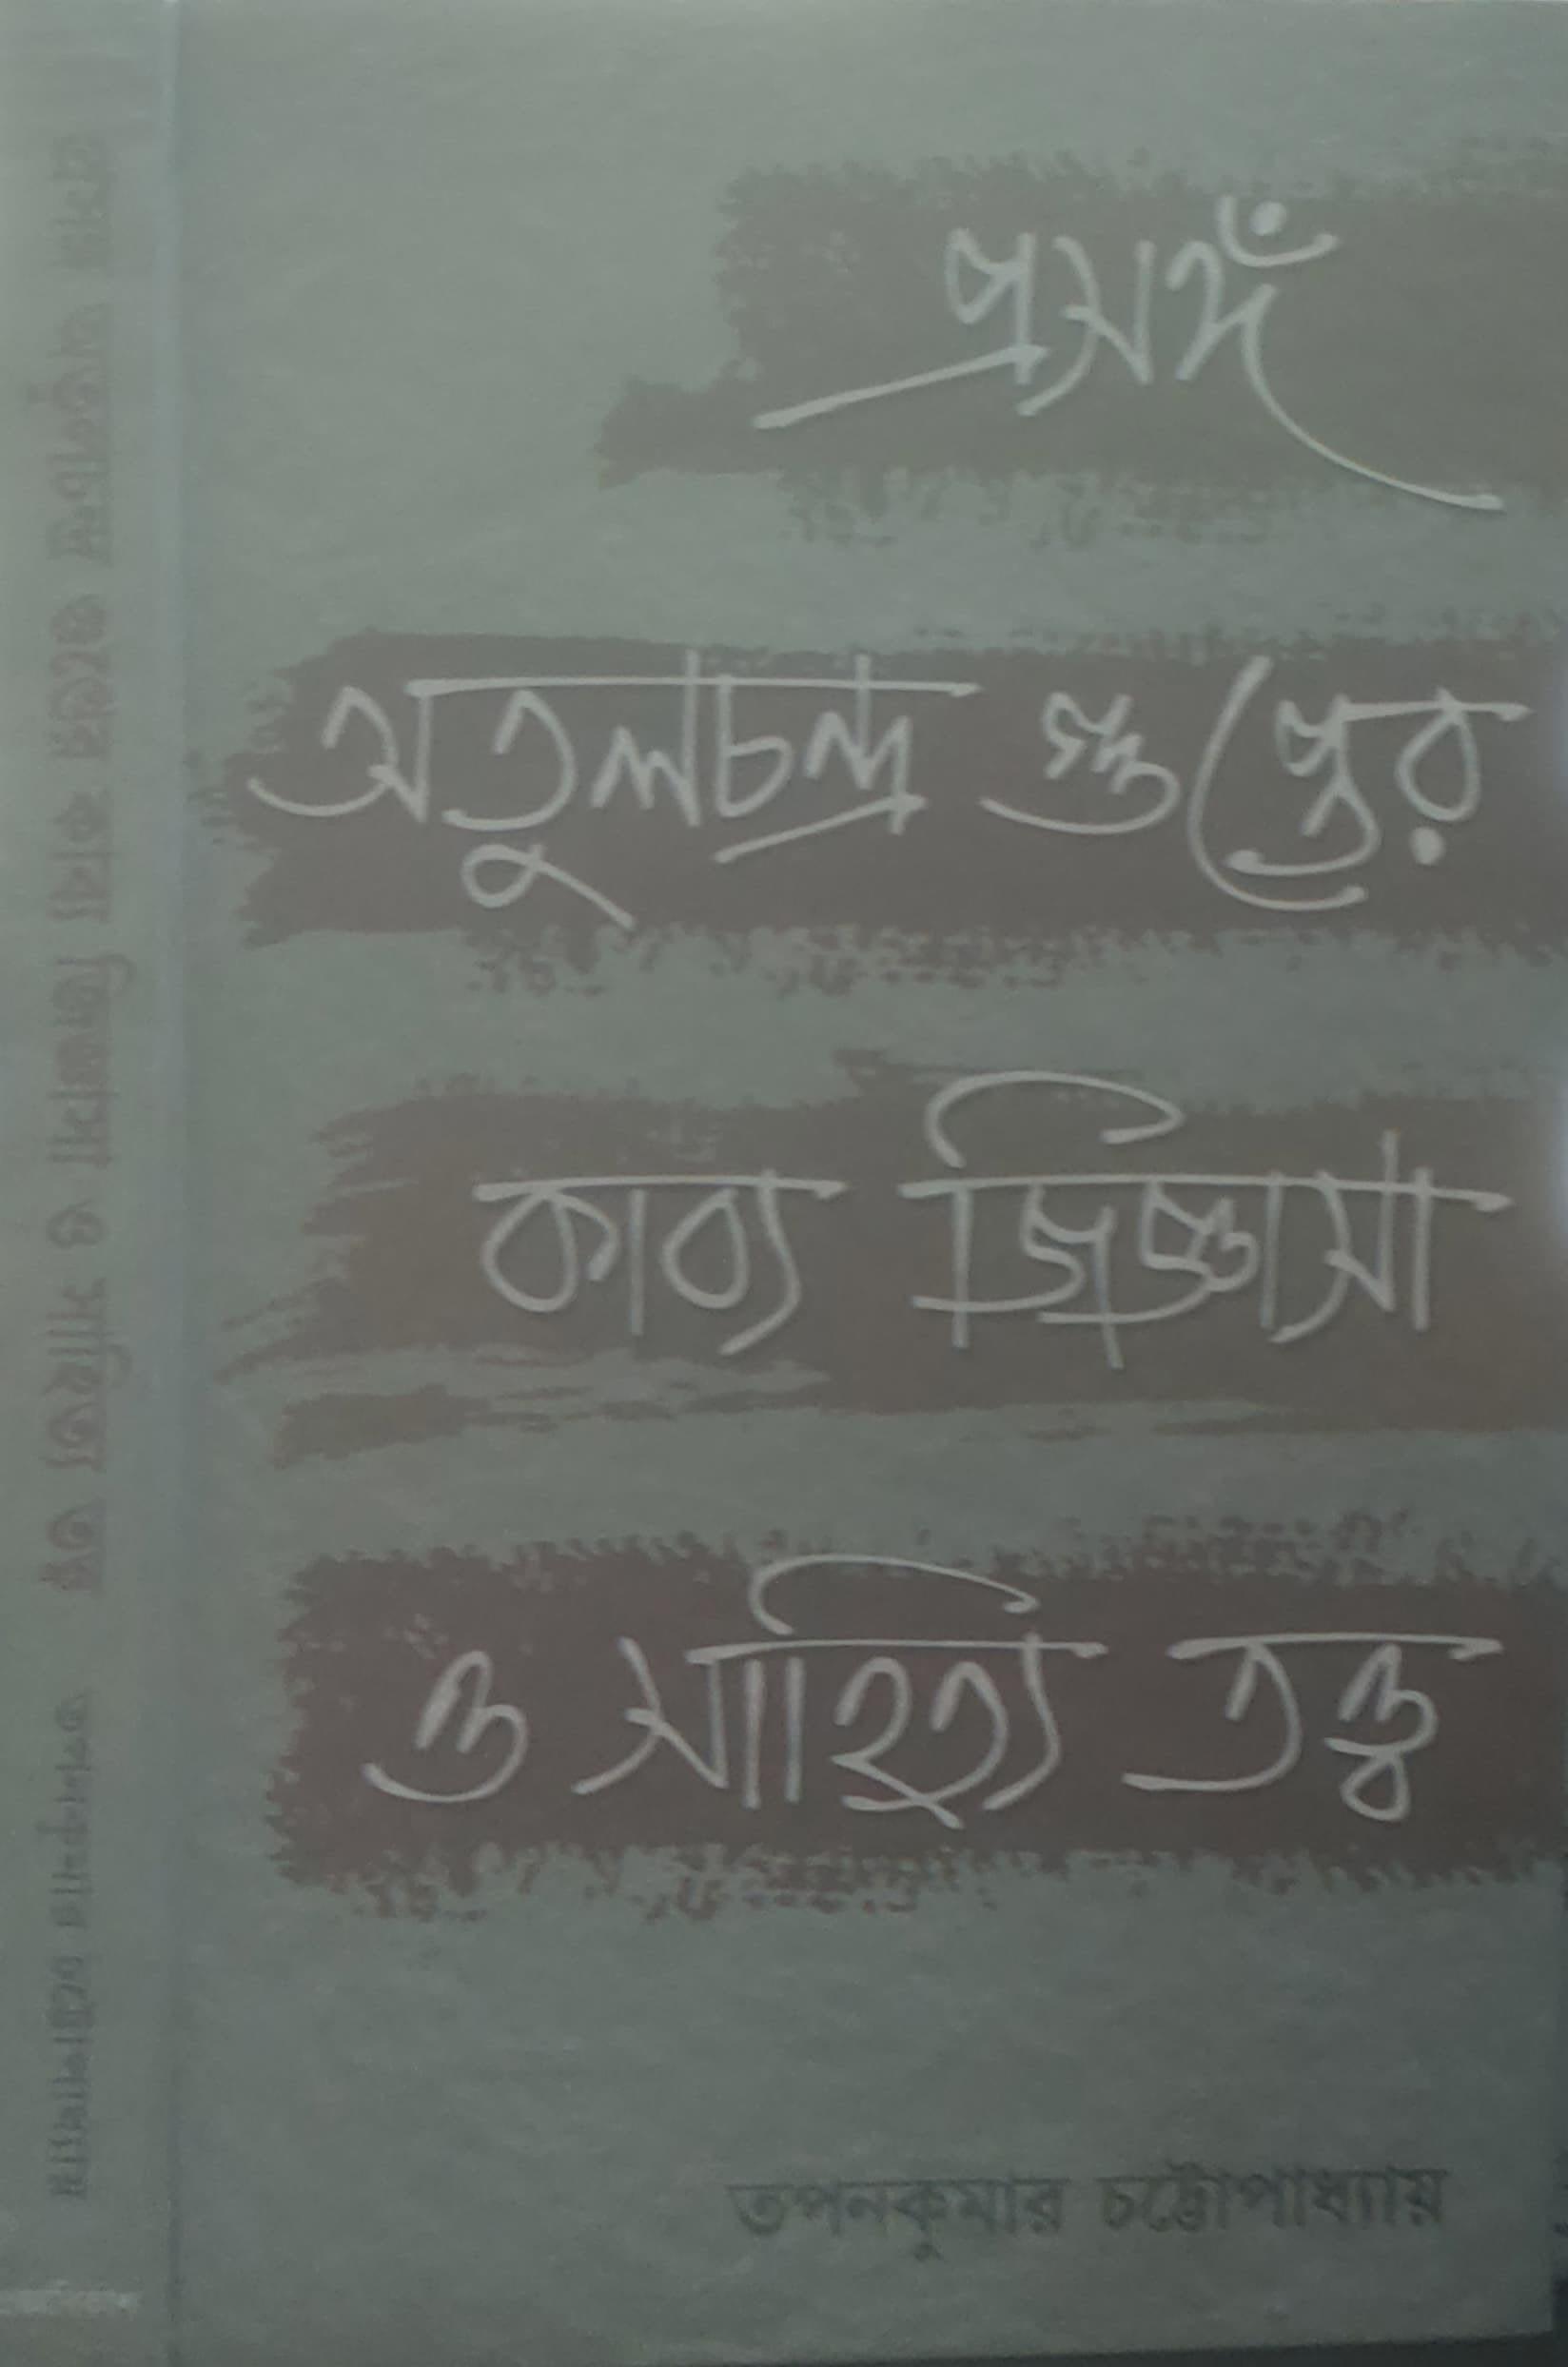 প্রসঙ্গ
অতুলচন্দ্র গুপ্তের
কাব্য জিজ্ঞাসা
ও সাহিত্য তত্ত্ব
তপনকুমার চট্টোপাধ্যায়
প্রসঙ্গ অতুলচন্দ্র গুপ্তের কাব্য জিজ্ঞাসা ও সাহিত্য তত্ত্ব
তপনকুমার চট্টোপাধ্যায়